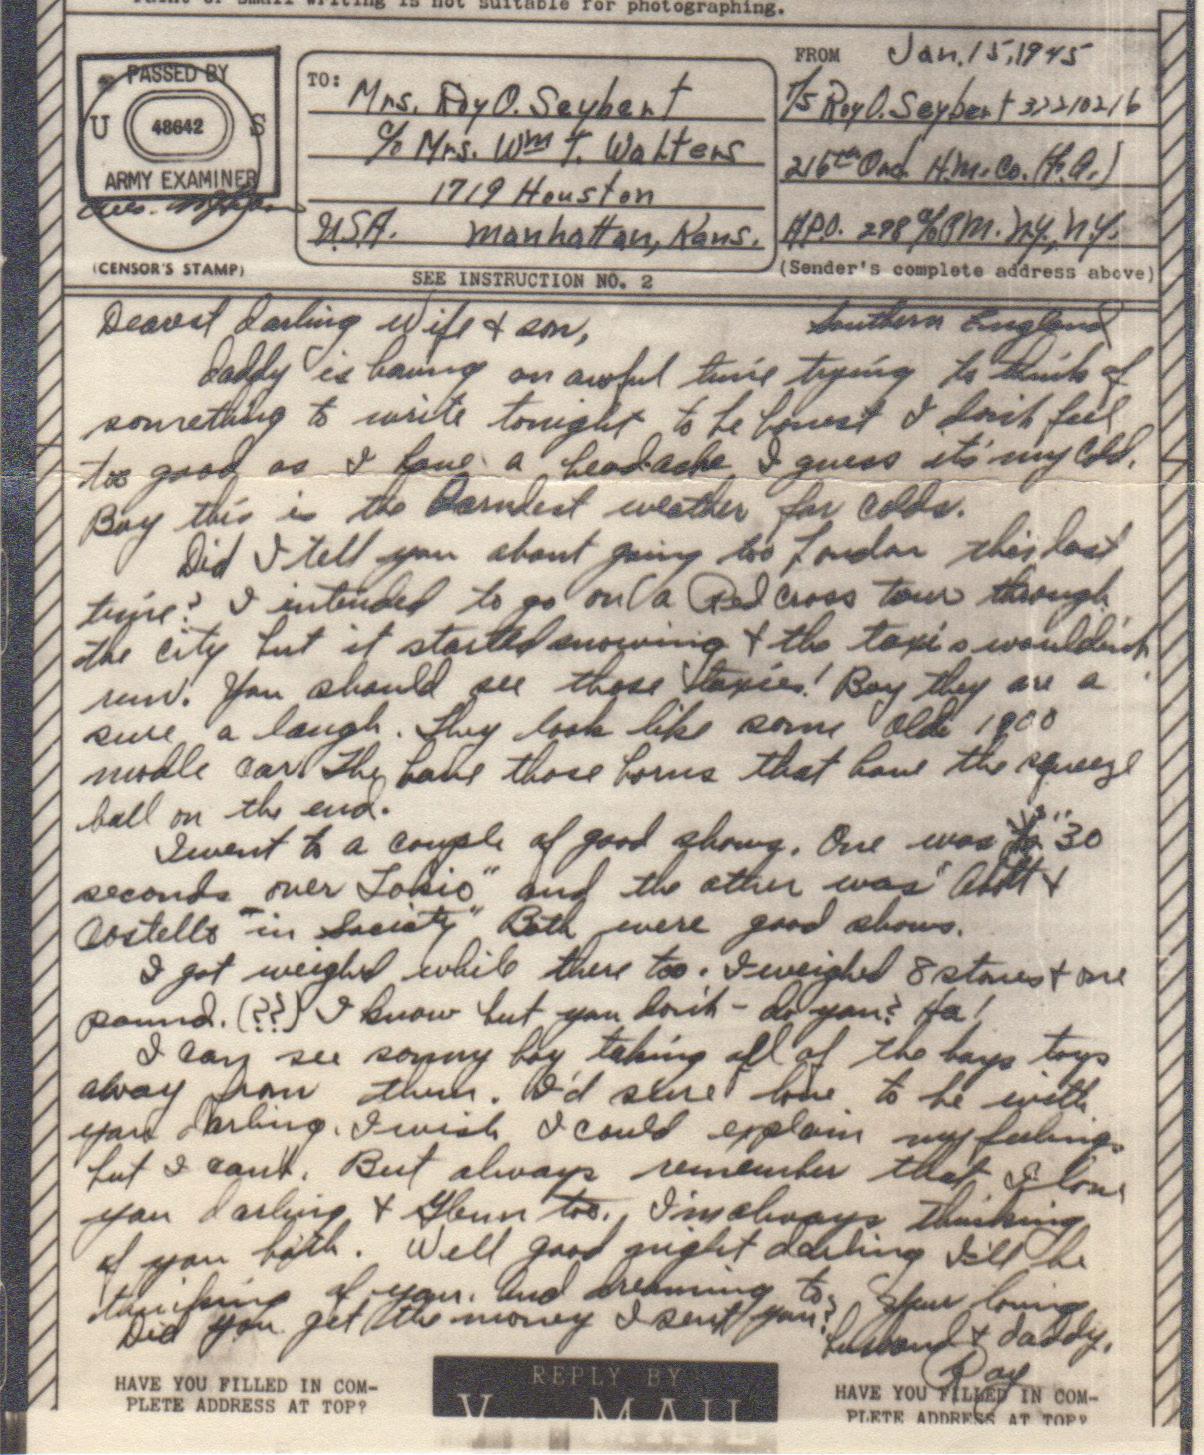 Paint or small writing is not suitable for photographing.
PASSED BY
U 48642 S
ARMY EXAMINER
(CENSOR'S STAMP)
TO: Mrs. Roy O. Seybert
c/o Mrs. Wm T. Walters
1719 Houston
U.S.A. Manhattan, Kans.
SEE INSTRUCTION NO. 2
FROM Jan. 15, 1945
T/5 Roy O. Seybert 37210216
216th Ord. H.M. Co. (F.A.)
A.P.O. 298 c/o P.M. N.Y., N.Y.
(Sender's complete address above)
Dearest darling Wife & son, Southern England
Daddy is having an awful time trying to think of
something to write tonight to be honest I don't feel
too good as I have a headache I guess it's my cold.
Boy this is the darndest weather for colds.
Did I tell you about going too London this last
time? I intended to go on a Red Cross tour through
the city but it started snowing & the taxi s wouldn't
run. You should see those taxies! Boy they are a
sure a laugh. They look like some olde 1900
modle car. The have those horns that have the squeeze
ball on the end.
I went to a couple of good shows. One was "30
seconds over Tokio" and the other was "Abott &
Costello "in Society" Both were good shows.
I got weighed while there too. I weighed 8 stones & one
pound. (??) I know but you don't - do you? Ha!
I can see sonny boy taking all of the boys toys
away from them. I'd sure love to be with
you darling. I wish I could explain my feelings
but I can't. But always remember that I love
you darling & Glenn too. I'm always thinking
of you both. Well good night darling I'll be
thinking of you. and dreaming to. Your loving
Did you get the money I sent you? husband & daddy,
Roy
HAVE YOU FILLED IN COM-
PLETE ADDRESS AT TOP?
REPLY BY
V MAIL
HAVE YOU FILLED IN COM-
PLETE ADDRESS AT TOP?